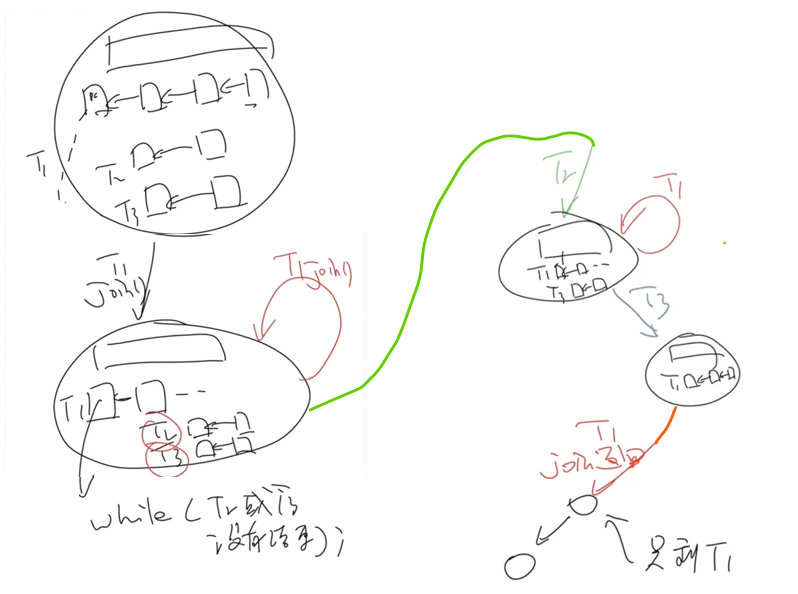 T1
T2
T3
T1
join()
T1 join()
T1
T2
T3
while (T2或T3
没有结束);
T2
T1
T1
T3
T3
T1
T1
join
只剩T1